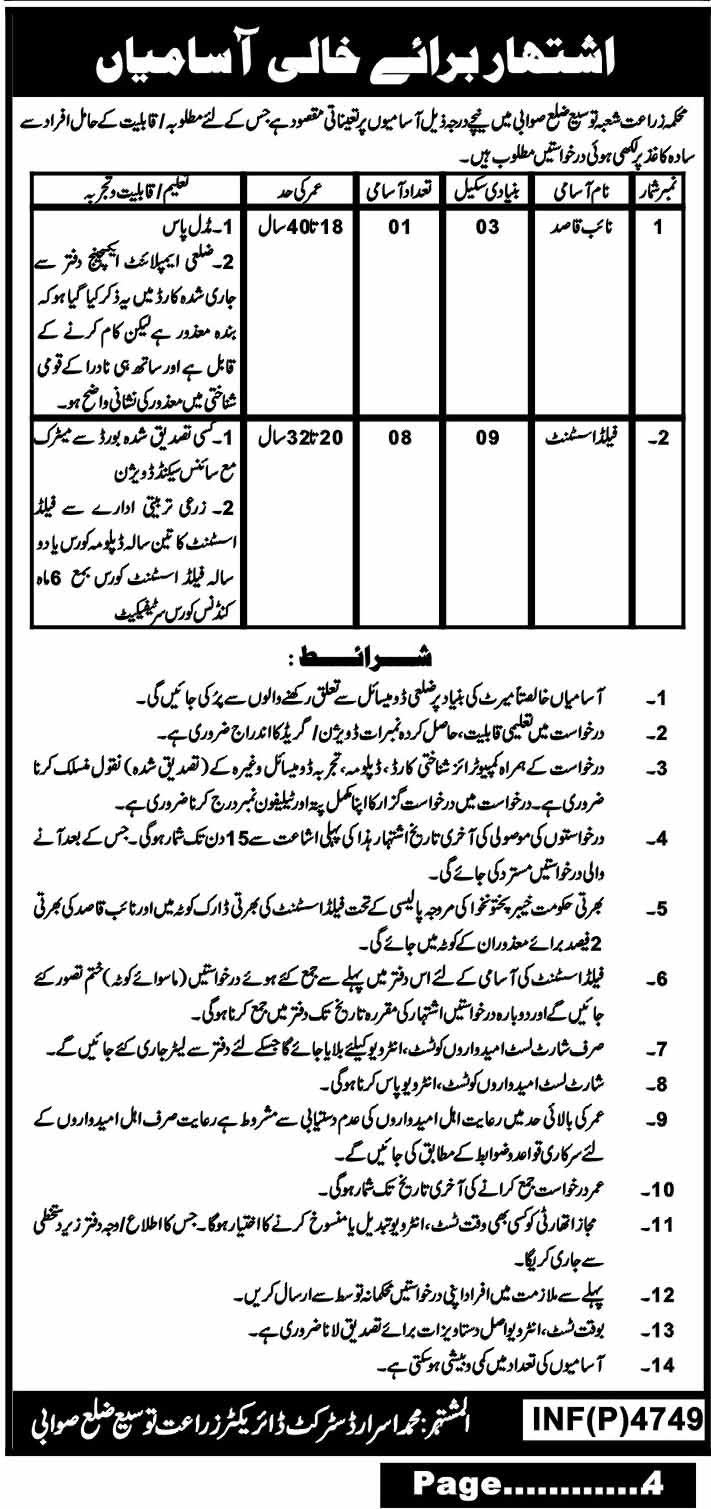 اشتہار برائے خالی آسامیاں
محکمہ زراعت شعبہ توسیع ضلع صوابی میں نیچے درجہ ذیل آسامیوں پر تعیناتی مقصود ہے جس کے لئے مطلوبہ / قابلیت کے حامل افراد سے
سادہ کاغذ پر لکھی ہوئی درخواستیں مطلوب ہیں۔
نمبر شمار نام آسامی بنیادی سکیل تعداد آسامی عمر کی حد تعلیم / قابلیت و تجربہ
1 نائب قاصد 03 01 18 تا 40 سال 1۔ مڈل پاس
2۔ ضلعی ایمپلائمنٹ ایکسچینج دفتر سے
جاری شدہ کارڈ میں یہ ذکر کیا گیا ہو کہ
بندہ معذور ہے لیکن کام کرنے کے
قابل ہے اور ساتھ ہی نادرا کے قومی
شناختی میں معذور کی نشانی واضح ہو۔
2۔ فیلڈ اسسٹنٹ 09 08 20 تا 32 سال 1۔ کسی تصدیق شدہ بورڈ سے میٹرک
مع سائنس سیکنڈ ڈویژن
2۔ زرعی تربیتی ادارے سے فیلڈ
اسسٹنٹ کا تین سالہ ڈپلومہ کورس یا دو
سالہ فیلڈ اسسٹنٹ کورس بمع 6 ماہ
کنڈنس کورس سرٹیفکیٹ
شرائط :
1۔ آسامیاں خالصتاً میرٹ کی بنیاد پر ضلعی ڈومیسائل سے تعلق رکھنے والوں سے پر کی جائیں گی۔
2۔ درخواست میں تعلیمی قابلیت، حاصل کردہ نمبرات ڈویژن / گریڈ کا اندراج ضروری ہے۔
3۔ درخواست کے ہمراہ کمپیوٹرائز شناختی کارڈ، ڈپلومہ، تجربہ ڈومیسائل وغیرہ کے (تصدیق شدہ) نقول منسلک کرنا
ضروری ہے۔ درخواست میں درخواست گزار کا اپنا مکمل پتہ اور ٹیلیفون نمبر درج کرنا ضروری ہے۔
4۔ درخواستوں کی موصولی کی آخری تاریخ اشتہار ہذا کی پہلی اشاعت سے 15 دن تک شمار ہوگی۔ جس کے بعد آنے
والی درخواستیں مسترد کی جائے گی۔
5۔ بھرتی حکومت خیبر پختونخوا کی مروجہ پالیسی کے تحت فیلڈ اسسٹنٹ کی بھرتی ڈارک کوٹہ میں اور نائب قاصد کی بھرتی
2 فیصد برائے معذوران کے کوٹہ میں جائے گی۔
6۔ فیلڈ اسسٹنٹ کی آسامی کے لئے اس دفتر میں پہلے سے جمع کئے ہوئے درخواستیں (ماسوائے کوٹہ) ختم تصور کئے
جائیں گے اور دوبارہ درخواستیں اشتہار کی مقررہ تاریخ تک دفتر میں جمع کرنا ہوگی۔
7۔ صرف شارٹ لسٹ امیدواروں کو ٹسٹ، انٹرویو کیلئے بلایا جائے گا جسکے لئے دفتر سے لیٹر جاری کئے جائیں گے۔
8۔ شارٹ لسٹ امیدواروں کو ٹسٹ، انٹرویو پاس کرنا ہوگی۔
9۔ عمر کی بالائی حد میں رعایت اہل امیدواروں کی عدم دستیابی سے مشروط ہے رعایت صرف اہل امیدواروں کے
لئے سرکاری قواعد و ضوابط کے مطابق کی جائیں گے۔
10۔ عمر درخواست جمع کرانے کی آخری تاریخ تک شمار ہوگی۔
11۔ مجاز اتھارٹی کو کسی بھی وقت ٹسٹ، انٹرویو تبدیل یا منسوخ کرنے کا اختیار ہوگا۔ جس کا اطلاع / وجہ دفتر زیر دستخطی
سے جاری کریگا۔
12۔ پہلے سے ملازمت میں افراد اپنی درخواستیں محکمانہ توسط سے ارسال کریں۔
13۔ بوقت ٹسٹ، انٹرویو اصل دستاویزات برائے تصدیق لانا ضروری ہے۔
14۔ آسامیوں کی تعداد میں کمی و بیشی ہوسکتی ہے۔
المشتہر: محمد اسرار ڈسٹرکٹ ڈائریکٹر زراعت توسیع ضلع صوابی
INF(P)4749
Page............4